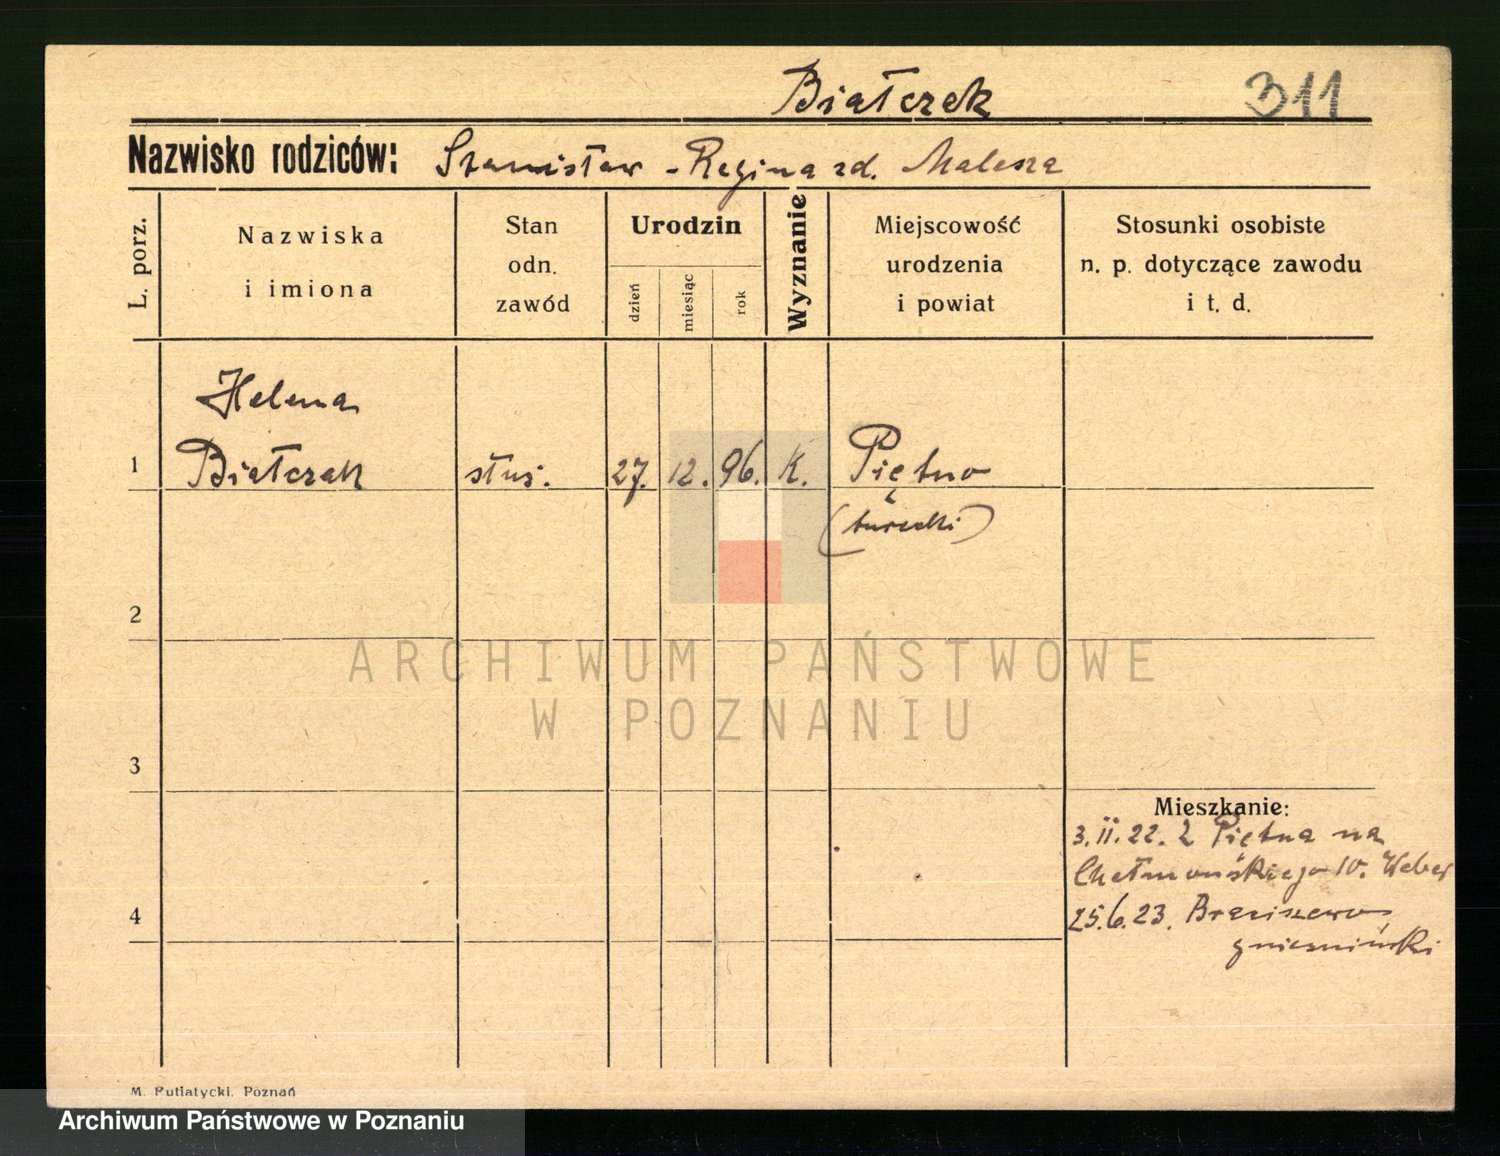 Białczek 311
Nazwisko rodziców: Stanisław - Regina zd. Malesza
L. porz.
Nazwiska
i imiona
Stan
odn.
zawód
Urodzin
dzień
miesiąc
rok
Wyznanie
Miejscowość
urodzenia
i powiat
Stosunki osobiste
n. p. dotyczące zawodu
i t. d.
Helena
1 Białczak służ. 27. 12. 96. K. Piętno
(turecki)
2
ARCHIWUM PAŃSTWOWE
W POZNANIU
3
Mieszkanie:
3.II.22. z Piętna na
Chełmońskiego 10. Weber
4 25.6.23.
gnieźnieński
M. Putiatycki. Poznań
Archiwum Państwowe w Poznaniu